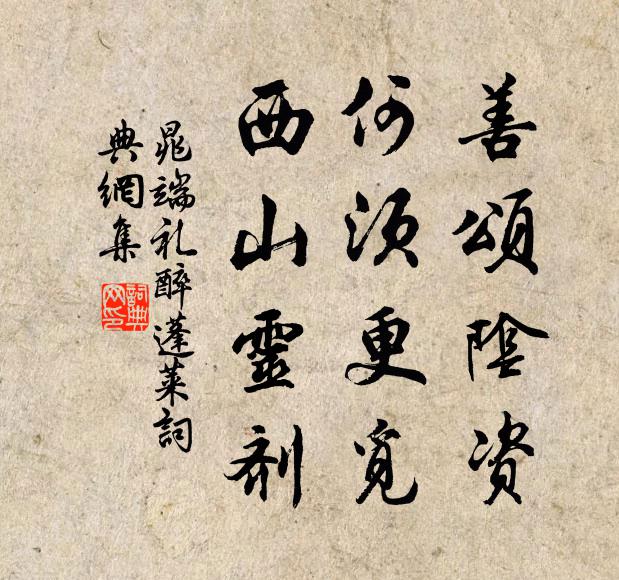 善頌陰資
何須更覓
西山靈劑
晁端礼醉蓬萊詞
典網集
詞典网印